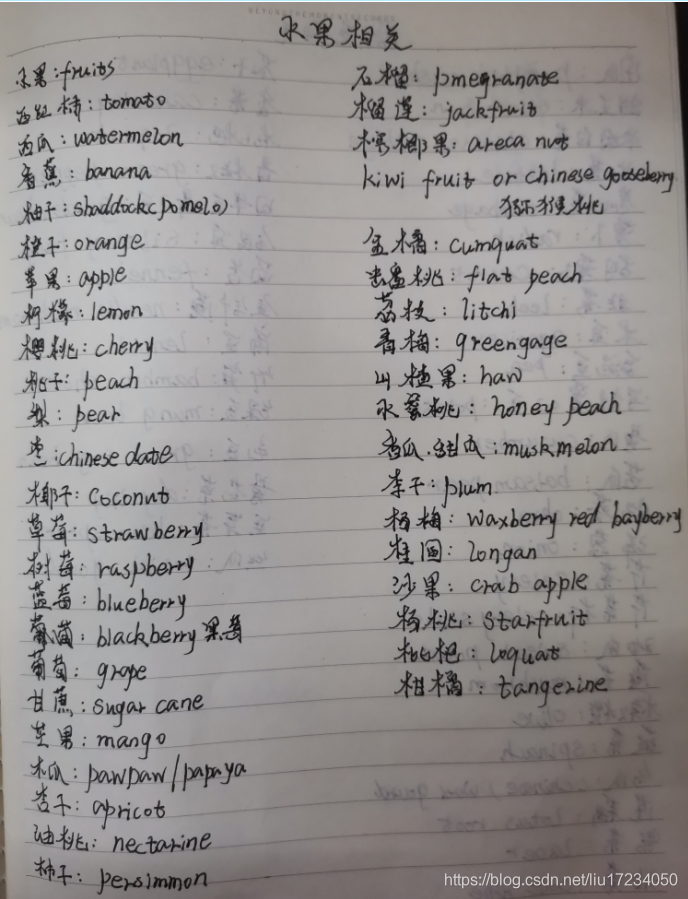 水果相关
水果:fruits
西红柿:tomato
西瓜:watermelon
香蕉:banana
柚子:shaddock(pomelo)
橙子:orange
苹果:apple
柠檬:lemon
樱桃:cherry
桃子:peach
梨:pear
枣:chinese date
椰子:coconut
草莓:strawberry
树莓:raspberry
蓝莓:blueberry
blackberry 黑莓
葡萄:grape
甘蔗:sugar cane
芒果:mango
木瓜:pawpaw/papaya
杏子:apricot
油桃:nectarine
柿子:persimmon
石榴:pmegranate
榴莲:jackfruit
槟榔果:areca nut
kiwi fruit or chinese gooseberry
猕猴桃
金橘:cumquat
蟠桃:flat peach
荔枝:litchi
青梅:greengage
山楂果:haw
水蜜桃:honey peach
香瓜,甜瓜:muskmelon
李子:plum
杨梅:waxberry red bayberry
桂圆:longan
沙果:crab apple
杨桃:starfruit
枇杷:loquat
柑橘:tangerine
https://blog.csdn.net/liu17234050